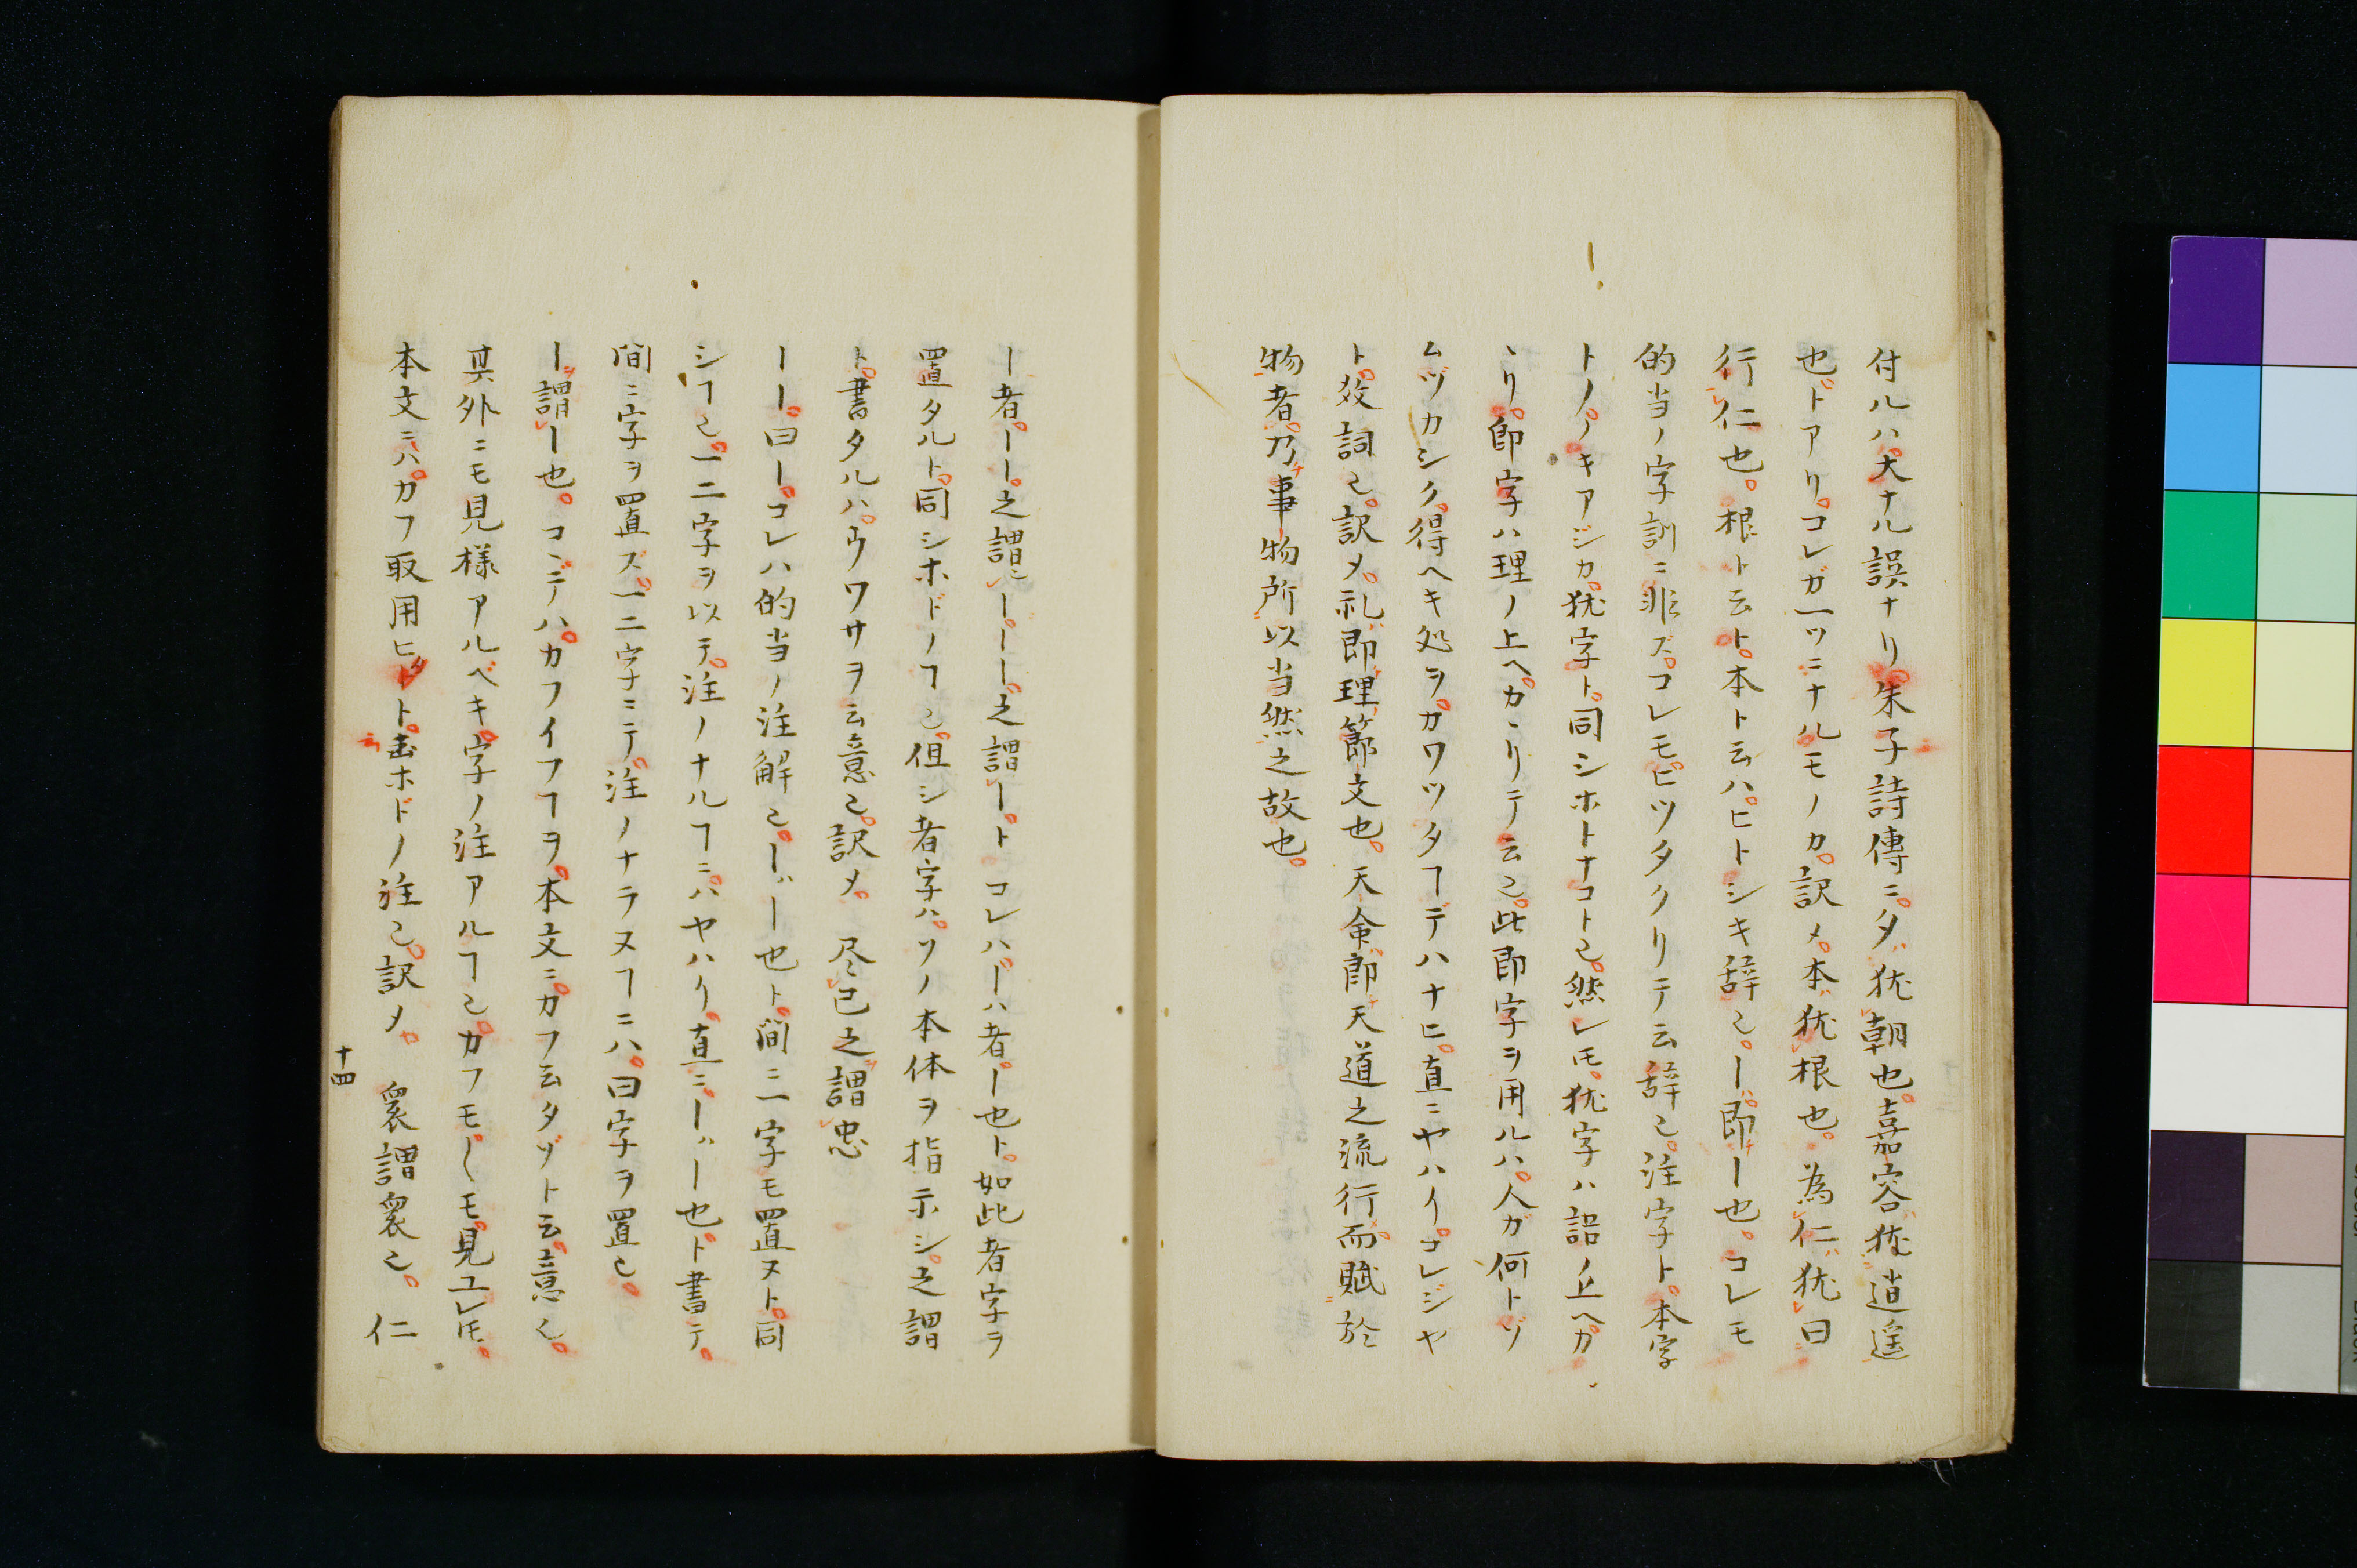 付ルハ大ナル誤ナリ。朱子詩傳ニ。夕犹朝也。嘉容犹逍遥
也。トアリ。コレガ一ツニナルモノカ。訳メ。本犹根也。為仁犹曰
行仁也。根ト云ト。本ト云ハ。ヒトシキ辞㔾。ー即ー也。コレモ
的当ノ字訓ニ非ズ。コレモ。ヒツタクリテ云辞㔾。注字ト。本字
トノ。ノキアジカ。犹字ト。同シホトナコト㔾。然レ𪜈。犹字ハ語ノ上ヘカ
ヽリ。即字ハ理ノ上ヘ。カヽリテ云㔾。此即字ヲ用ルハ。人ガ何トゾ
ムヅカシク。得ヘキ処ヲ。カワツタヿデハナヒ。直ニヤハイ。コレジヤ
ト。效詞㔾。訳メ。礼即理節文也。天命即天道之流行。而賦於
物者。乃事物所以当然之故也。
ー者。ーー。之謂ー。ーー。之謂ー。ト コレハ。ーハ者。ー也ト。如此者字ヲ
置タルト。同シホドノヿ㔾。但シ者字ハ。ソノ本体ヲ指示シ。之謂
ト。書タルハ。ウワサヲ云意㔾。訳メ。 尽己之謂忠
ーー。曰ー。コレハ的当ノ注解㔾。ーハー也ト。間ニ一字モ置ヌト。同
シヿ㔾。一二字ヲ以テ。注ノナルヿニハ。ヤハリ。直ニ。ーハー也。ト書テ。
間ニ字ヲ置ズ。一二字ニテ。注ノナラヌヿニハ。曰字ヲ置㔾。
ー謂ー也。コヽデハ。カフイフヿヲ。本文ニ。カフ云タゾト云。意㔾。
其外ニモ見様アルベキ。字ノ注アルヿ㔾。カフモ。ーモ。見ユレ𪜈。
本文ニハ。カフ取用ヒタト。云ホドノ注㔾。訳メ。 衆謂衆㔾。 仁
十四